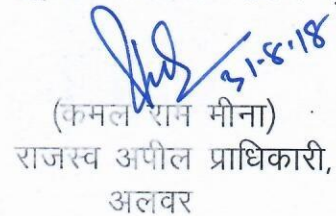 31-8-18
(कमल राम मीना)
राजस्व अपील प्राधिकारी,
अलवर